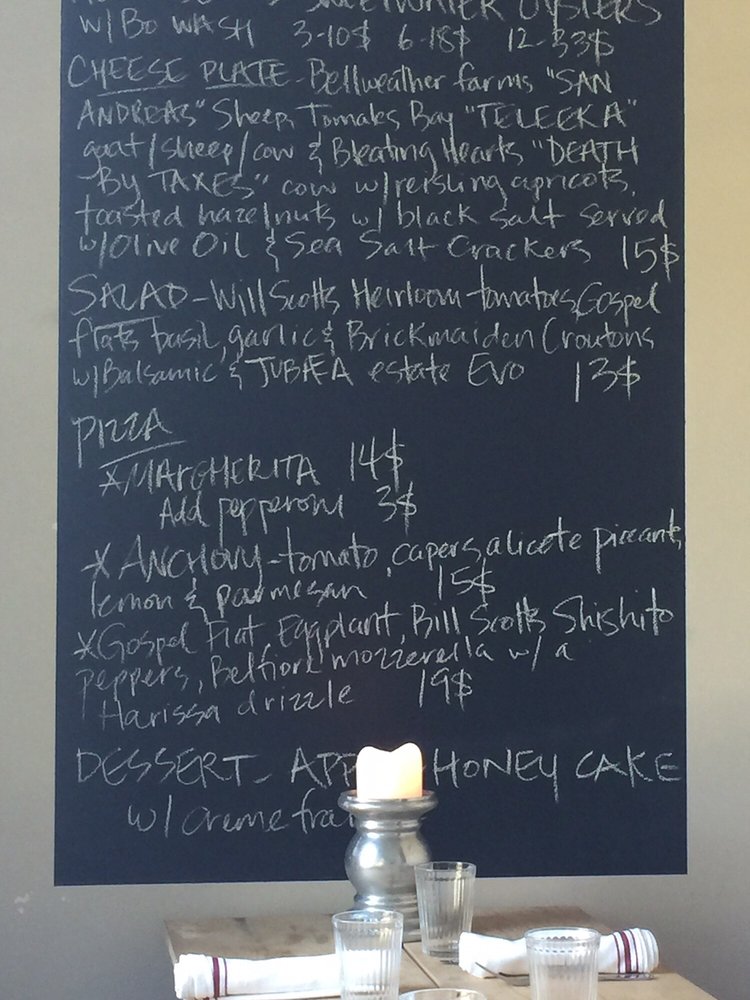 SWEETWATER OYSTERS
w/ Bo WASH 3-10$ 6-18$ 12-33$
CHEESE PLATE - Bellweather farms "SAN
ANDREAS" Sheep, Tomales Bay "TELEEKA"
goat/sheep/cow & Bleating Hearts "DEATH
-By TAXES" cow w/reisling apricots,
toasted hazelnuts w/ black salt served
w/Olive Oil & Sea Salt Crackers 15$
SALAD - Will Scotts Heirloom tomatoes, Gospel
flats basil, garlic & Brickmaiden Croutons
w/Balsamic & JUBÆA estate Evo 13$
PIZZA
*MARGHERITA 14$
Add pepperoni 3$
*ANCHOVY - tomato, capers, alicote piccante,
lemon & parmesan 15$
*Gospel Flat Eggplant, Bill Scotts Shishito
peppers, Belfiore mozzerella w/ a
Harissa drizzle 19$
DESSERT - HONEY CAKE
w/ creme